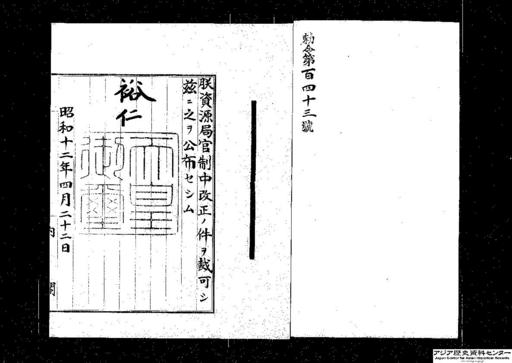 勅令第百四十三號
朕資源局官制中改正ノ件ヲ裁可シ
茲ニ之ヲ公布セシム
裕仁
天皇
御璽
昭和十二年四月二十二日
内閣
アジア歴史資料センター
Japan Center for Asian Historical Records